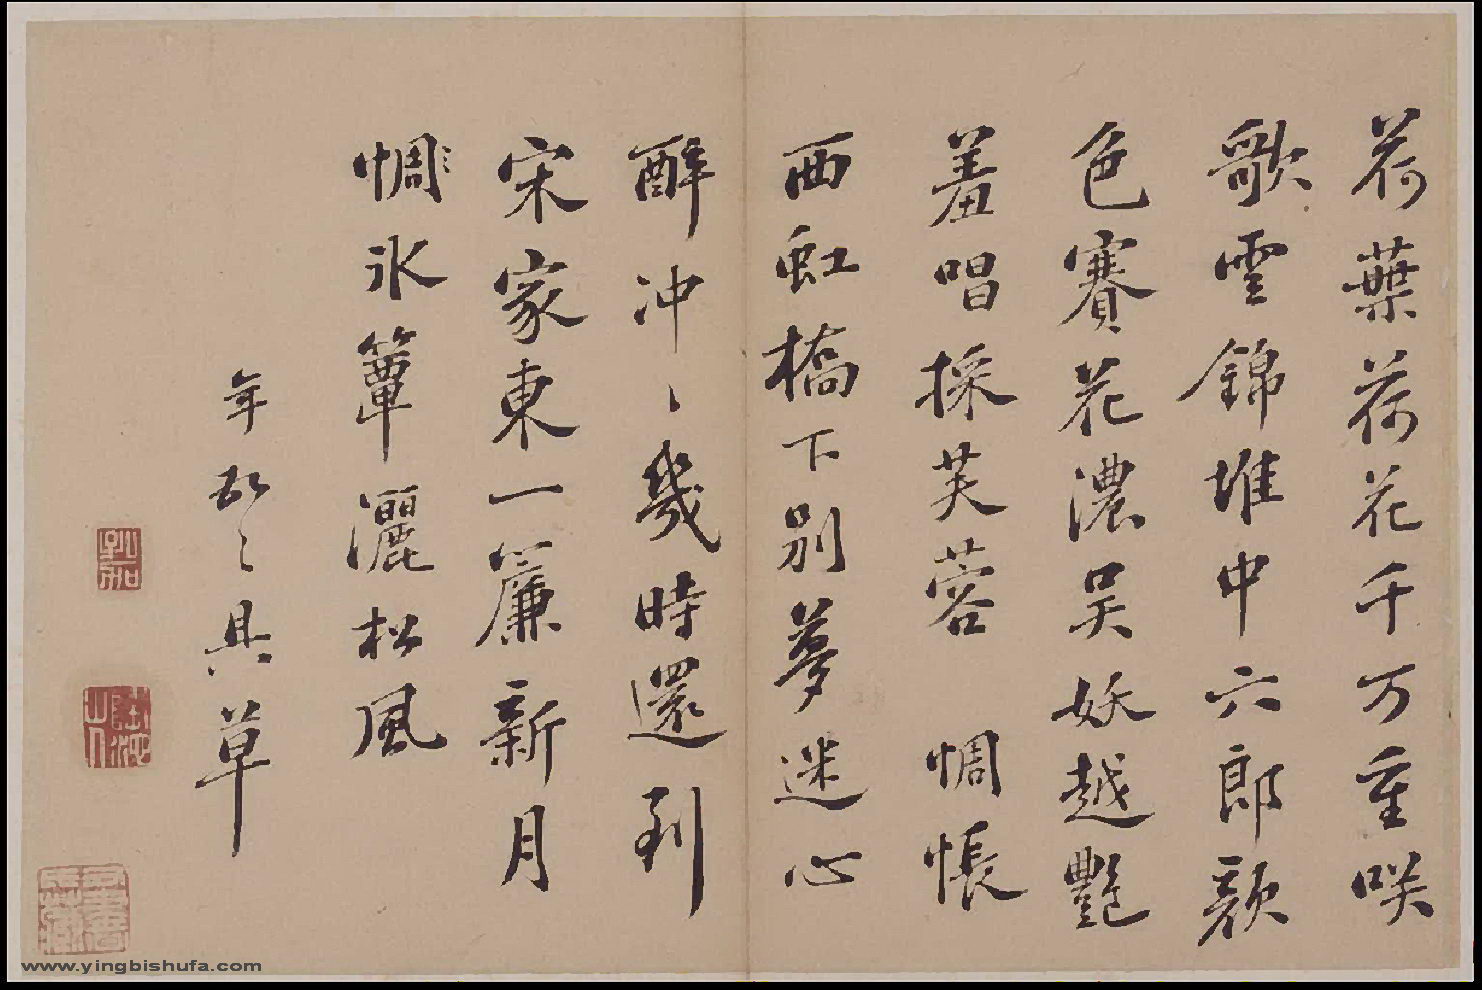 荷葉荷花千万重咲
歌雲錦堆中六郎顏
色賽花濃吴妖越艷
羞唱採芙蓉　惆悵
西虹橋下別夢迷心
醉冲〻幾時還到
宋家東一簾新月
惆氷簟灑松風
年
具草
www.yingbishufa.com